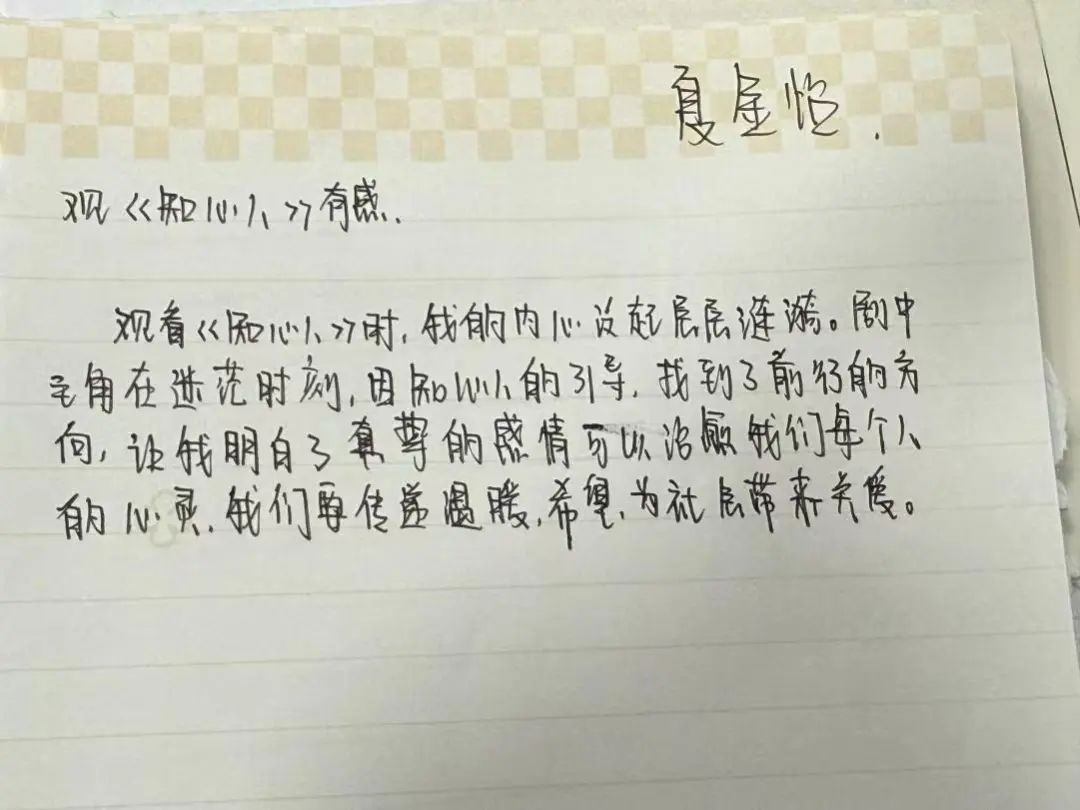 夏金怡.
观《知心人》有感.
观看《知心人》时,我的内心泛起层层涟漪。剧中
主角在迷茫时刻,因知心人的引导,找到了前行的方
向,让我明白了真挚的感情可以治愈我们每个人
的心灵.我们要传递温暖,希望,为社会带来关爱。